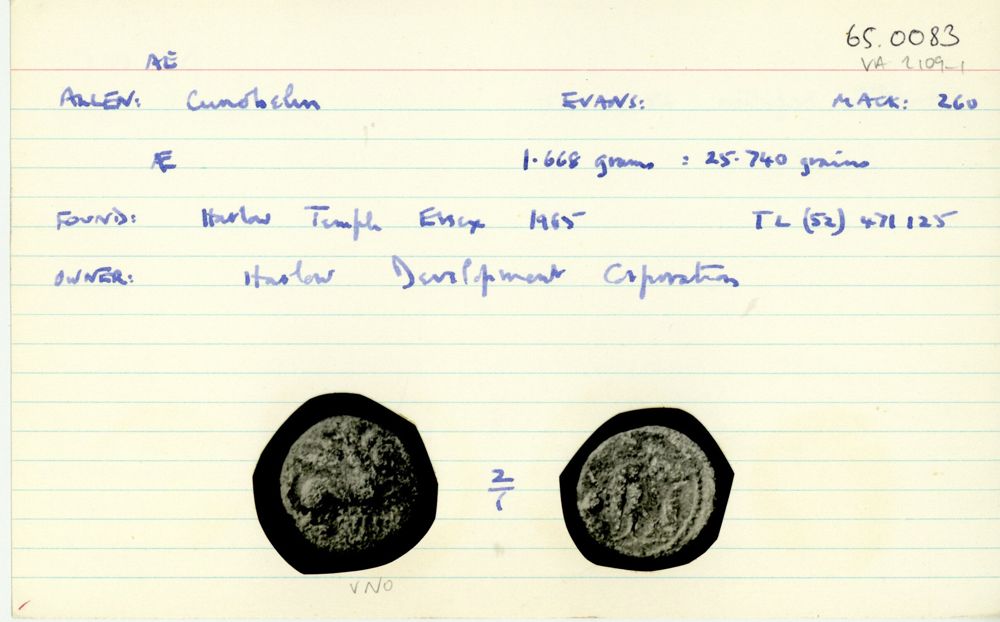 65.0083
AE
VA 2109-1
ALLEN: Cunobelin EVANS: MACK: 260
Æ 1.668 grams : 25.740 grains
FOUND: Harlow Temple Essex 1965 TL (52) 471 125
OWNER: Harlow Development Corporation
2
1
VNO